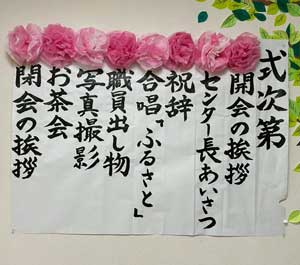 式次第
開会の挨拶
センター長あいさつ
祝辞
合唱「ふるさと」
職員出し物
写真撮影
お茶会
閉会の挨拶